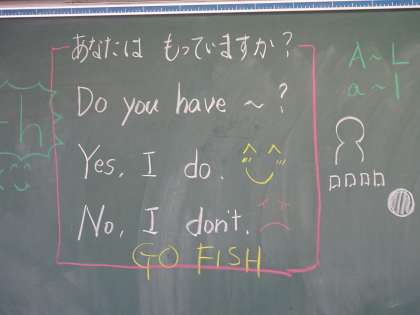 あなたは もっていますか？
Do you have ~ ?
Yes, I do.
No, I don't.
GO FISH
A~L
a~l
h